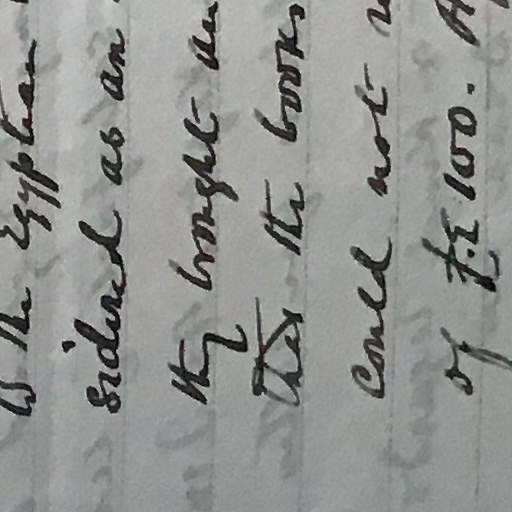 to the Egyptian
sidered as an
they brought an
that the books
could not
of £.E 100.